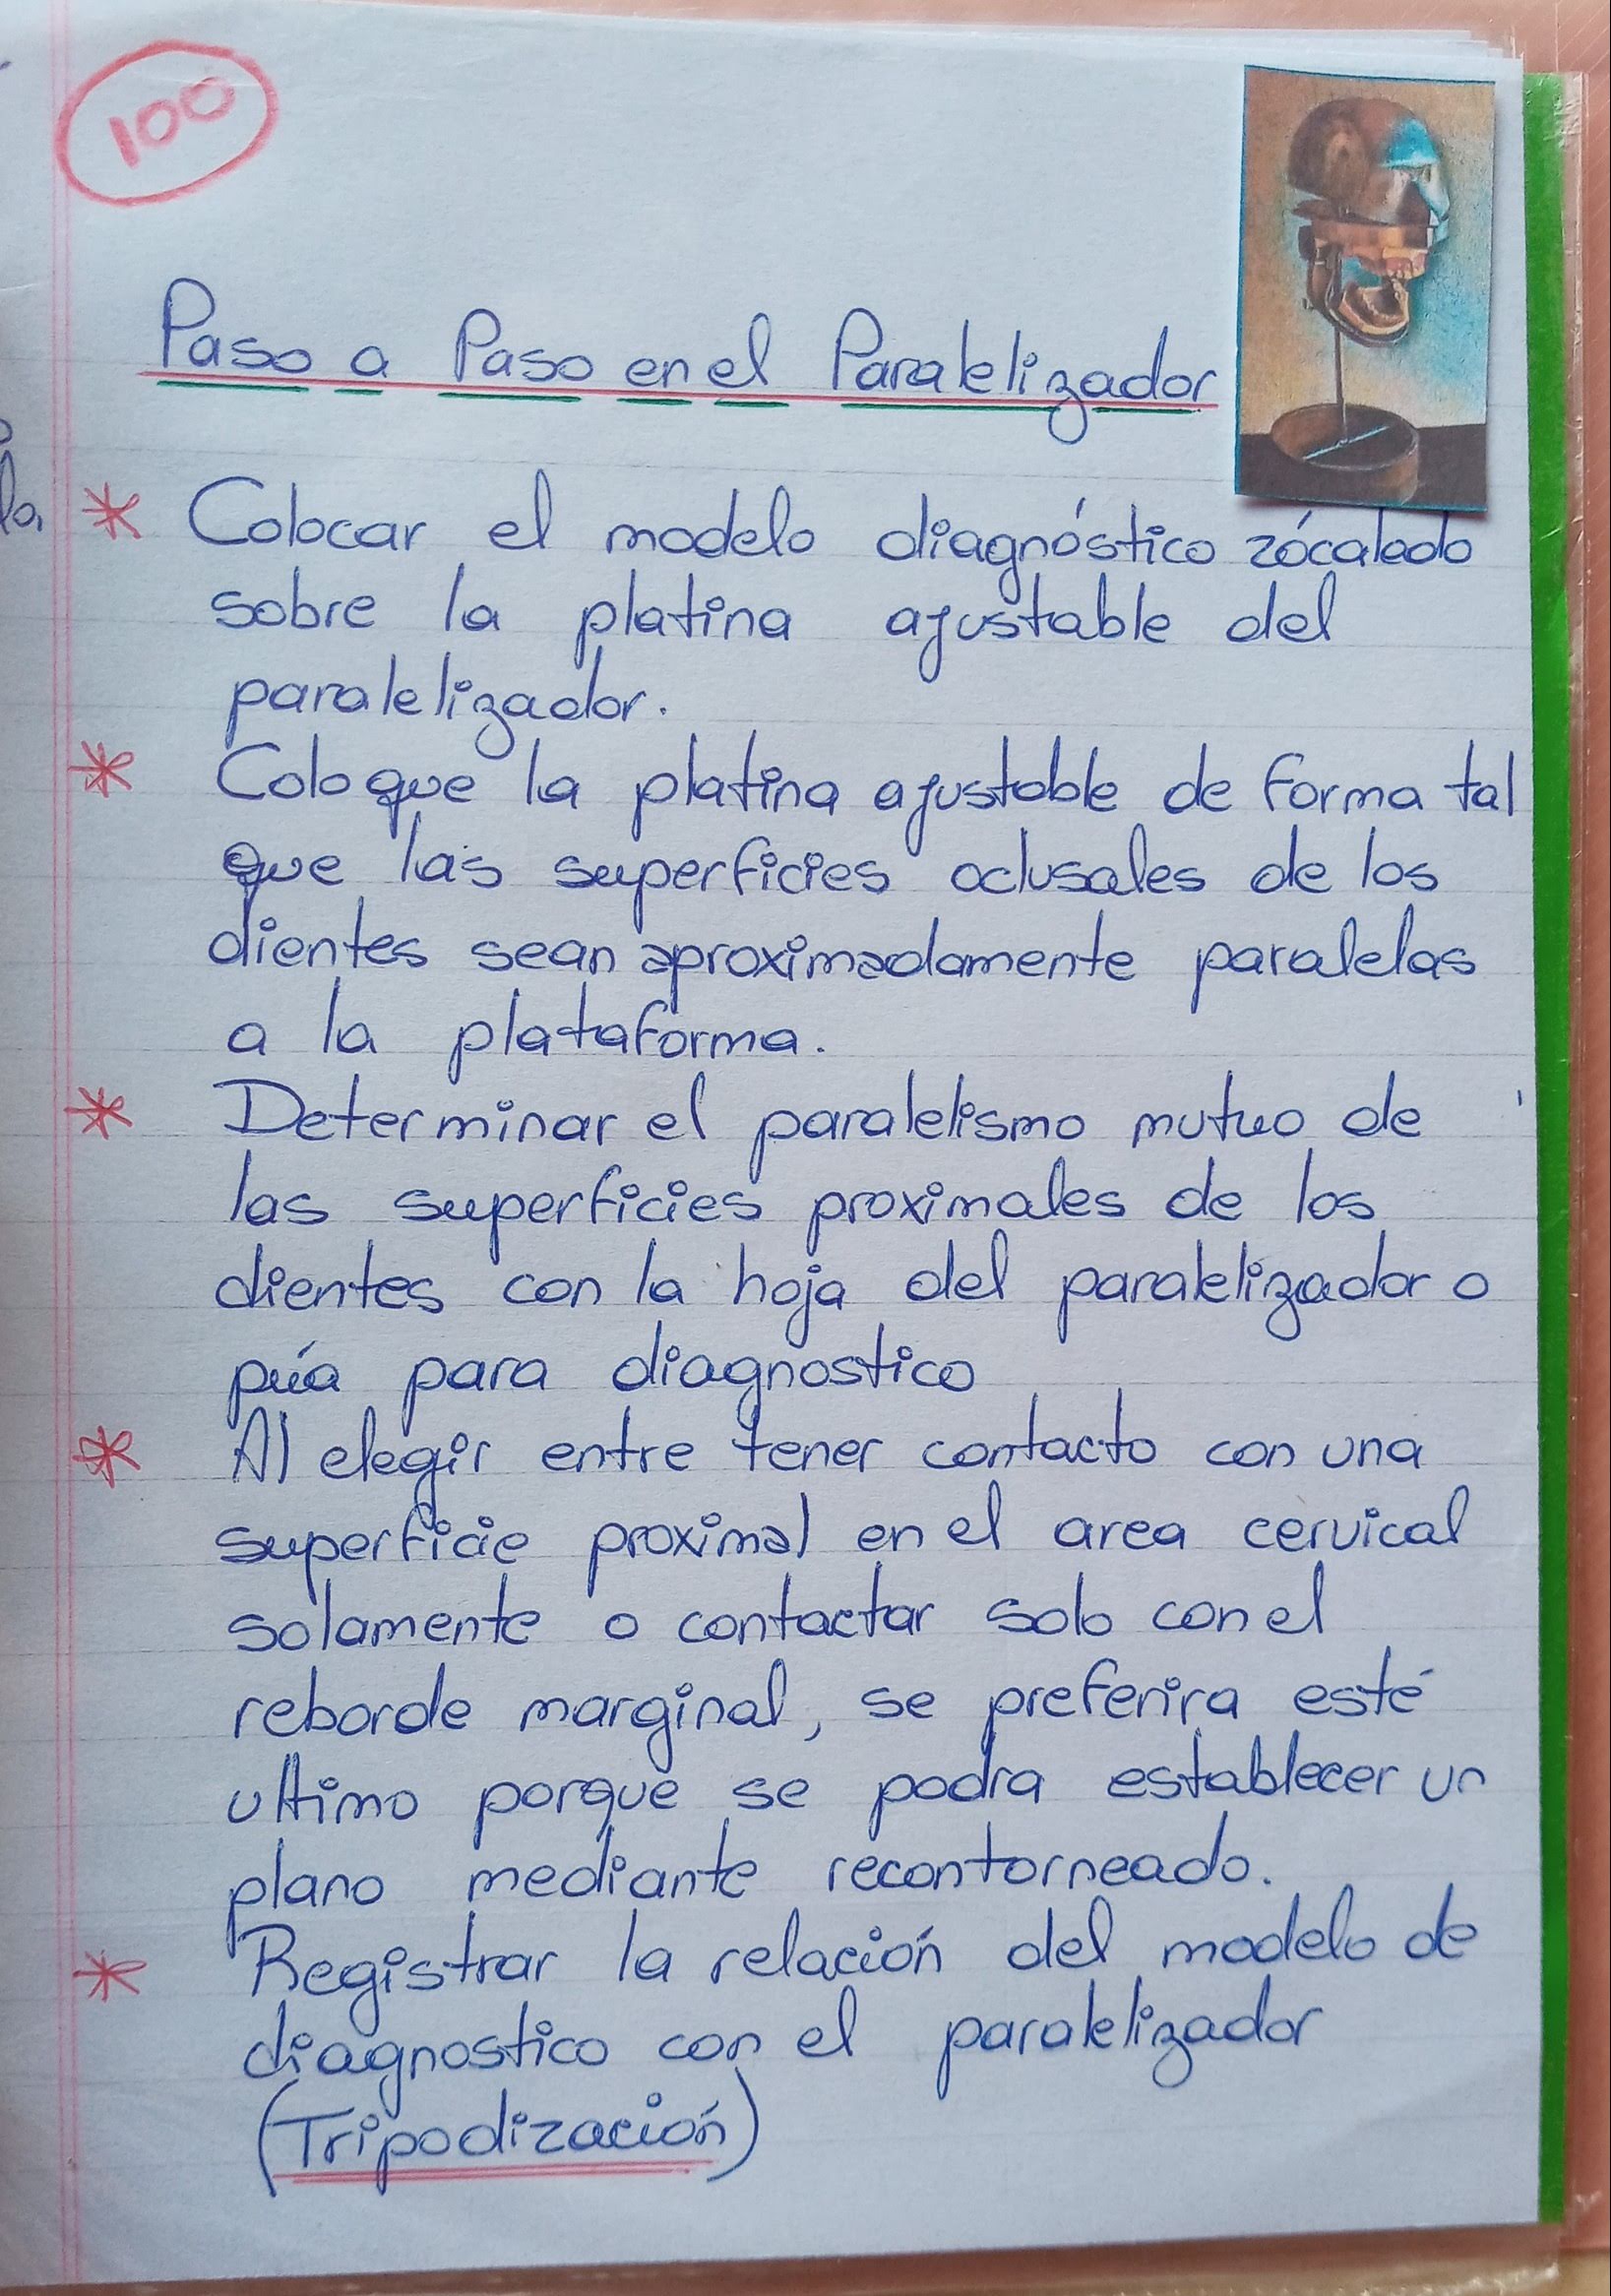 100
Paso a Paso en el Paralelizador
* Colocar el modelo diagnóstico zócalado
sobre la platina ajustable del
paralelizador.
* Coloque la platina ajustable de forma tal
que las superficies oclusales de los
dientes sean aproximadamente paralelas
a la plataforma.
* Determinar el paralelismo mutuo de
las superficies proximales de los
dientes con la hoja del paralelizador o
púa para diagnostico
* Al elegir entre tener contacto con una
superficie proximal en el area cervical
solamente o contactar solo con el
reborde marginal, se preferira esté
ultimo porque se podra establecer un
plano mediante recontorneado.
* Registrar la relación del modelo de
diagnostico con el paralelizador
(Tripodización)